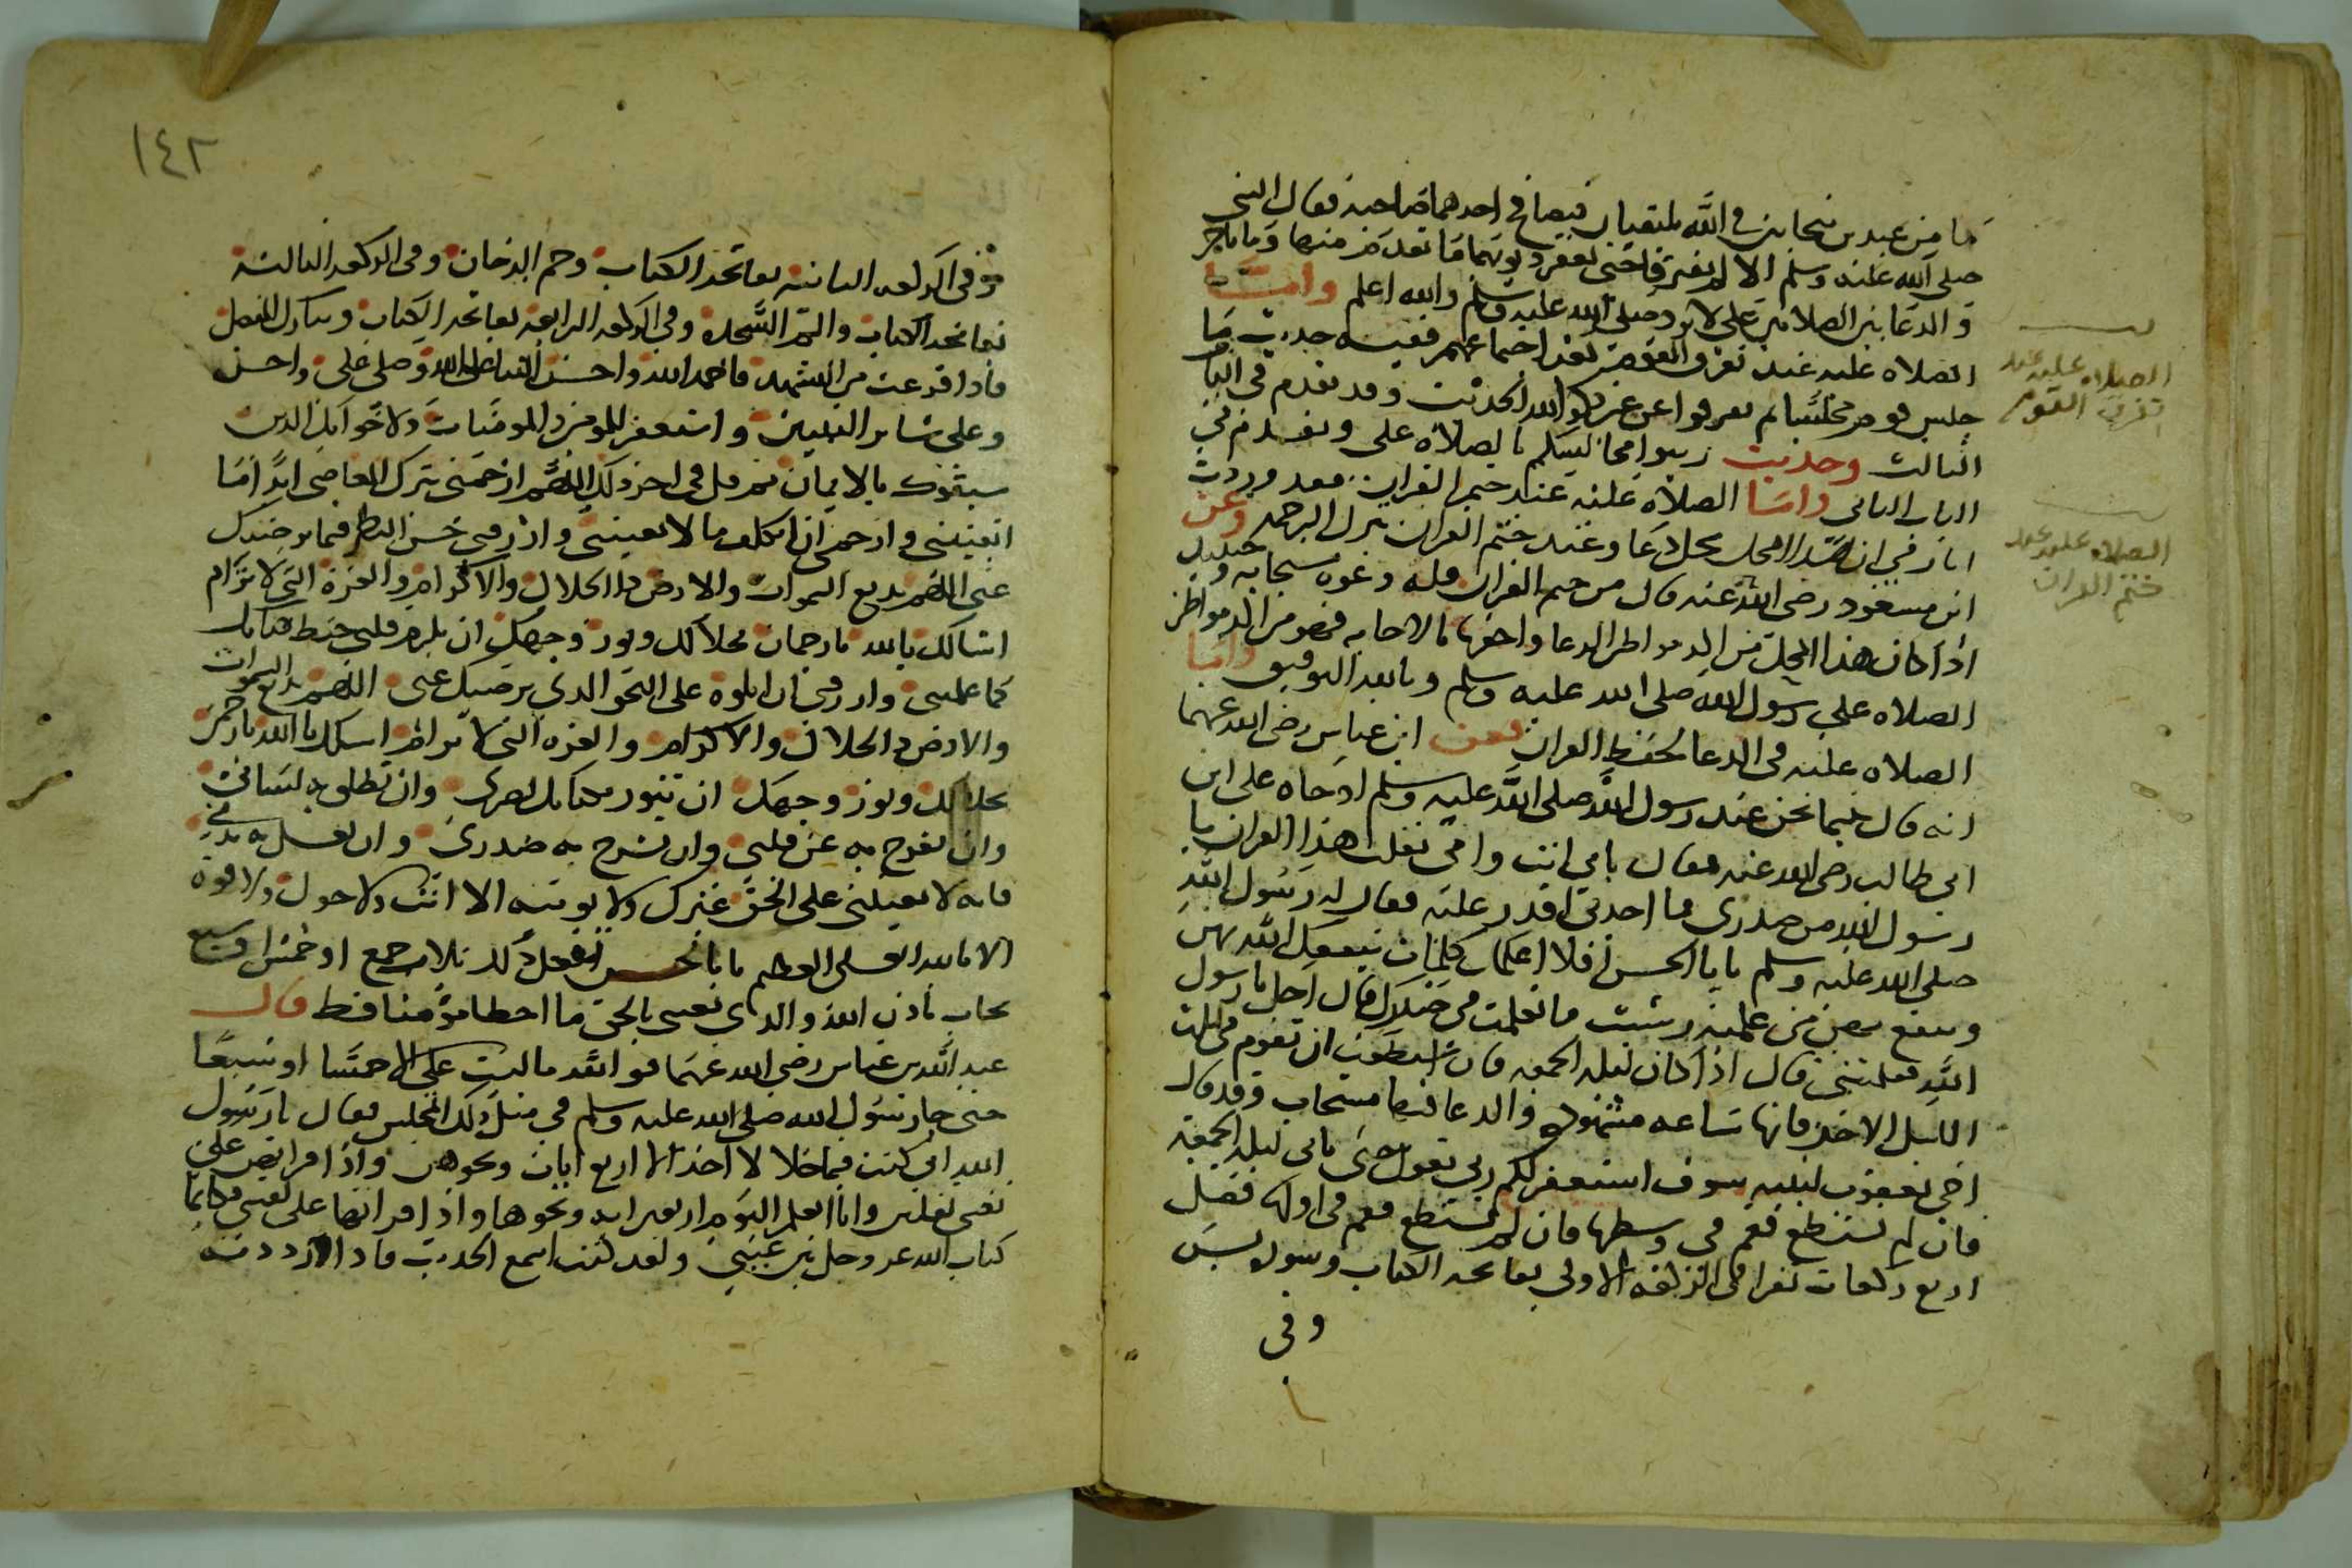 ما من عبدين متحابين في الله يلتقيان فيصافح احدهما صاحبه فقال النبي
صلى الله عليه وسلم الا لم يفترقا حتى يغفر ذنوبهما ما تقدم منها وما تاخر
والدعا بين الصلاتين على لا يرد صلى الله عليه وسلم والله اعلم واما
الصلاه عليه عند تفرق القوم بعد اجتماعهم ففيه حديث ما
جلس قوم مجلسا لم تفرقوا عن غير ذكر الله الحديث وقد تقدم في الباب
الثالث وحديث زينوا مجالسكم بالصلاه علي وتقدم في
الباب الثاني واما الصلاه عليه عند ختم القران فقد وردت
اثار في ان هذا المحل محل دعا وعند ختم القران تنزل الرحمه وعن
ابن مسعود رضي الله عنه قال من ختم القران فله دعوه مستجابه وحينئذ
اذا كان هذا المحل من اكد مواطن الدعا واحقها بالاجابه فهو من اكد مواطن
الصلاه على رسول الله صلى الله عليه وسلم وبالله التوفيق واما
الصلاه عليه في الدعا لحفظ القران فعن ابن عباس رضي الله عنهما
انه قال بينما نحن عند رسول الله صلى الله عليه وسلم اذ جاه على ابن
ابي طالب رضي الله عنه فقال بابي انت وامي تفلت هذا القران يا
رسول الله من صدري فما اجدني اقدر عليه فقال له رسول الله
صلى الله عليه وسلم يا با الحسن افلا اعلمك كلمات ينفعك الله بهن
وينفع بهن من علمته ويثبت ما تعلمت في صدرك قال اجل يا رسول
الله فعلمني قال اذا كان ليله الجمعه فان استطعت ان تقوم في ثلث
الليل الاخر فانها ساعه مشهوده والدعا فيها مستجاب وقد قال
اخي يعقوب لبنيه سوف استغفر لكم ربي يقول حتى تاتي ليله الجمعه
فان لم تستطع فقم في وسطها فان لم تستطع فقم في اولها فصل
اربع ركعات تقرا في الركعه الاولى بفاتحه الكتاب وسوره يس
وفي
الصلاه عليه عند
تفرق القوم
الصلاه عليه عند
ختم القران
١٤٢
وفي الركعه الثانيه بفاتحه الكتاب وحم الدخان وفي الركعه الثالثه
بفاتحه الكتاب والم السجده وفي الركعه الرابعه بفاتحه الكتاب وتبارك المفصل
فاذا فرغت من التشهد فاحمد الله واحسن الثنا على الله وصلي علي واحسن
وعلى سائر النبيين واستغفر للمومنين والمومنات ولاخوانك الذين
سبقوك بالايمان ثم قل في اخر ذلك اللهم ارحمني بترك المعاصي ابدا ما
ابقيتني وارحمني ان اتكلف ما لا يعنيني وارزقني حسن النظر فيما يرضيك
عني اللهم بديع السموات والارض ذا الجلال والاكرام والعزة التي لا ترام
اسالك يا الله يا رحمان بجلالك ونور وجهك ان تلزم قلبي حفظ كتابك
كما علمتني وارزقني ان اتلوه على النحو الذي يرضيك عني اللهم بديع السموات
والارض ذا الجلال والاكرام والعزه التي لا ترام اسالك يا الله يا رحمن
بجلالك ونور وجهك ان تنور بكتابك بصري وان تطلق به لساني
وان تفرج به عن قلبي وان تشرح به صدري وان تغسل به بدني
فانه لا يعينني على الحق غيرك ولا يوتيه الا انت ولا حول ولا قوه
الا بالله العلي العظيم يا با الحسن تفعل ذلك ثلاث جمع او خمس او سبع
تجاب باذن الله والذي بعثني بالحق ما اخطا مومنا قط قال
عبد الله بن عباس رضي الله عنهما فوالله ما لبث علي الا خمسا او سبعا
حتى جا رسول الله صلى الله عليه وسلم في مثل ذلك المجلس فقال يا رسول
الله اني كنت فيما خلا لا اخذ الا اربع ايات ونحوهن واذا قراتهن على
نفسي تفلتن وانا اتعلم اليوم اربعين ايه ونحوها واذا قراتها على نفسي فكانما
كتاب الله عز وجل بين عيني ولقد كنت اسمع الحديث فاذا رددته